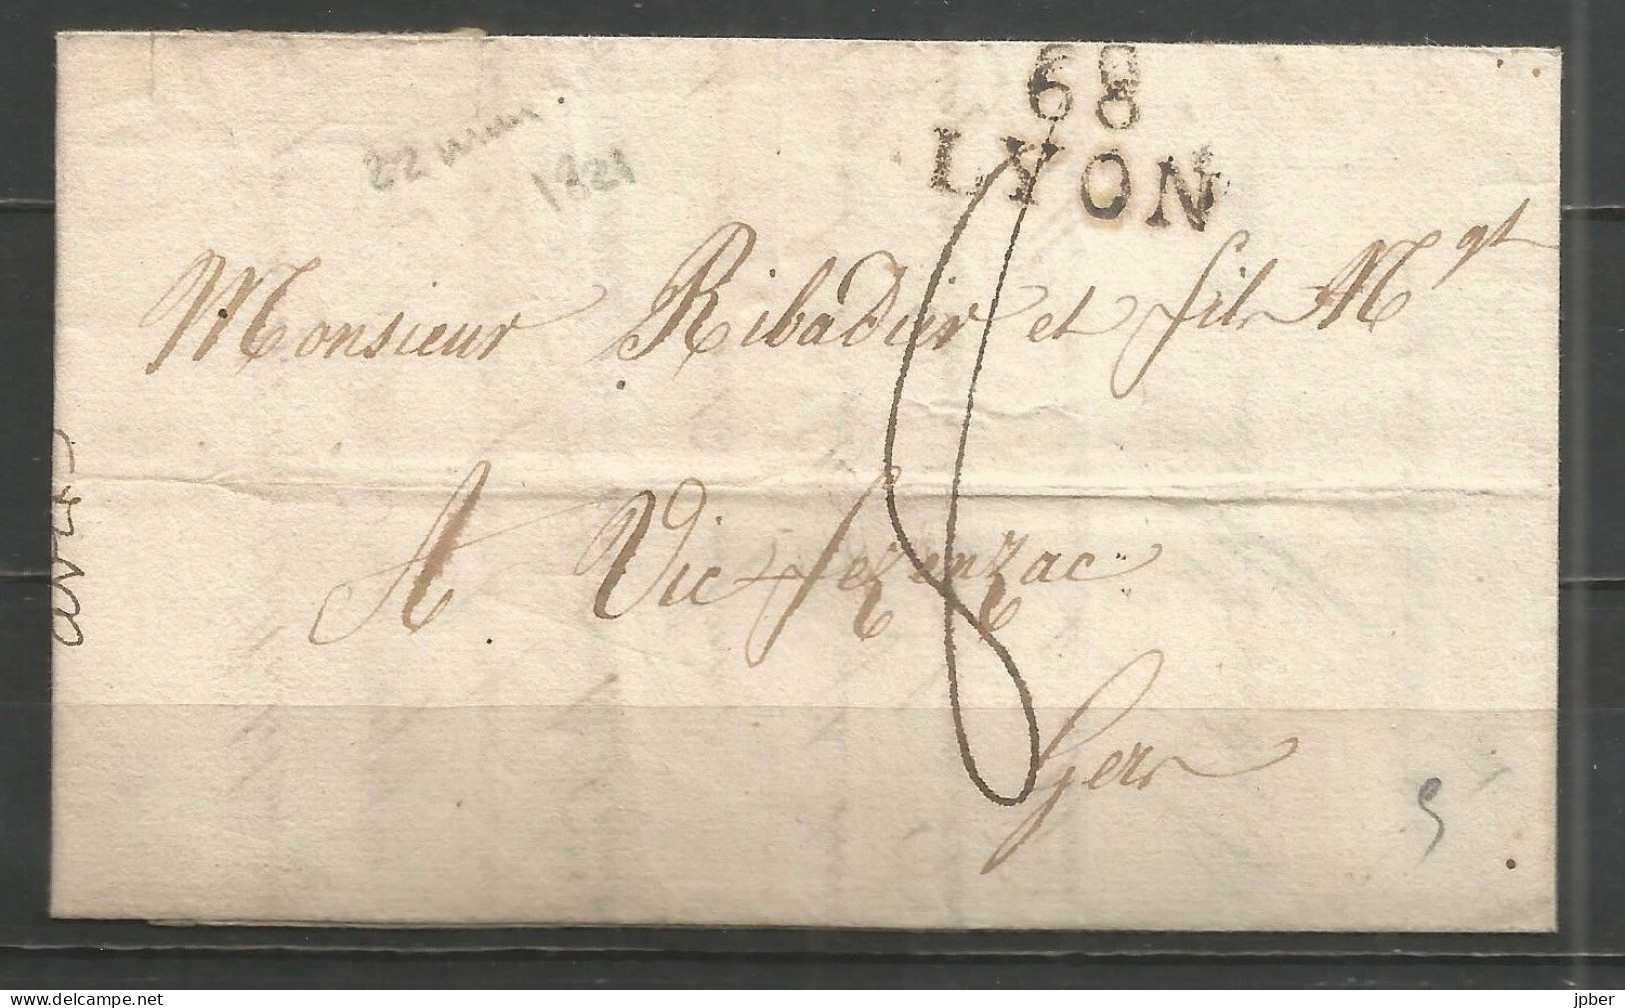 68
LYON
22 mars
1821
Monsieur Ribadieu et fils M^gt
A Vic fezenzac
Gers
delcampe.net
jpber